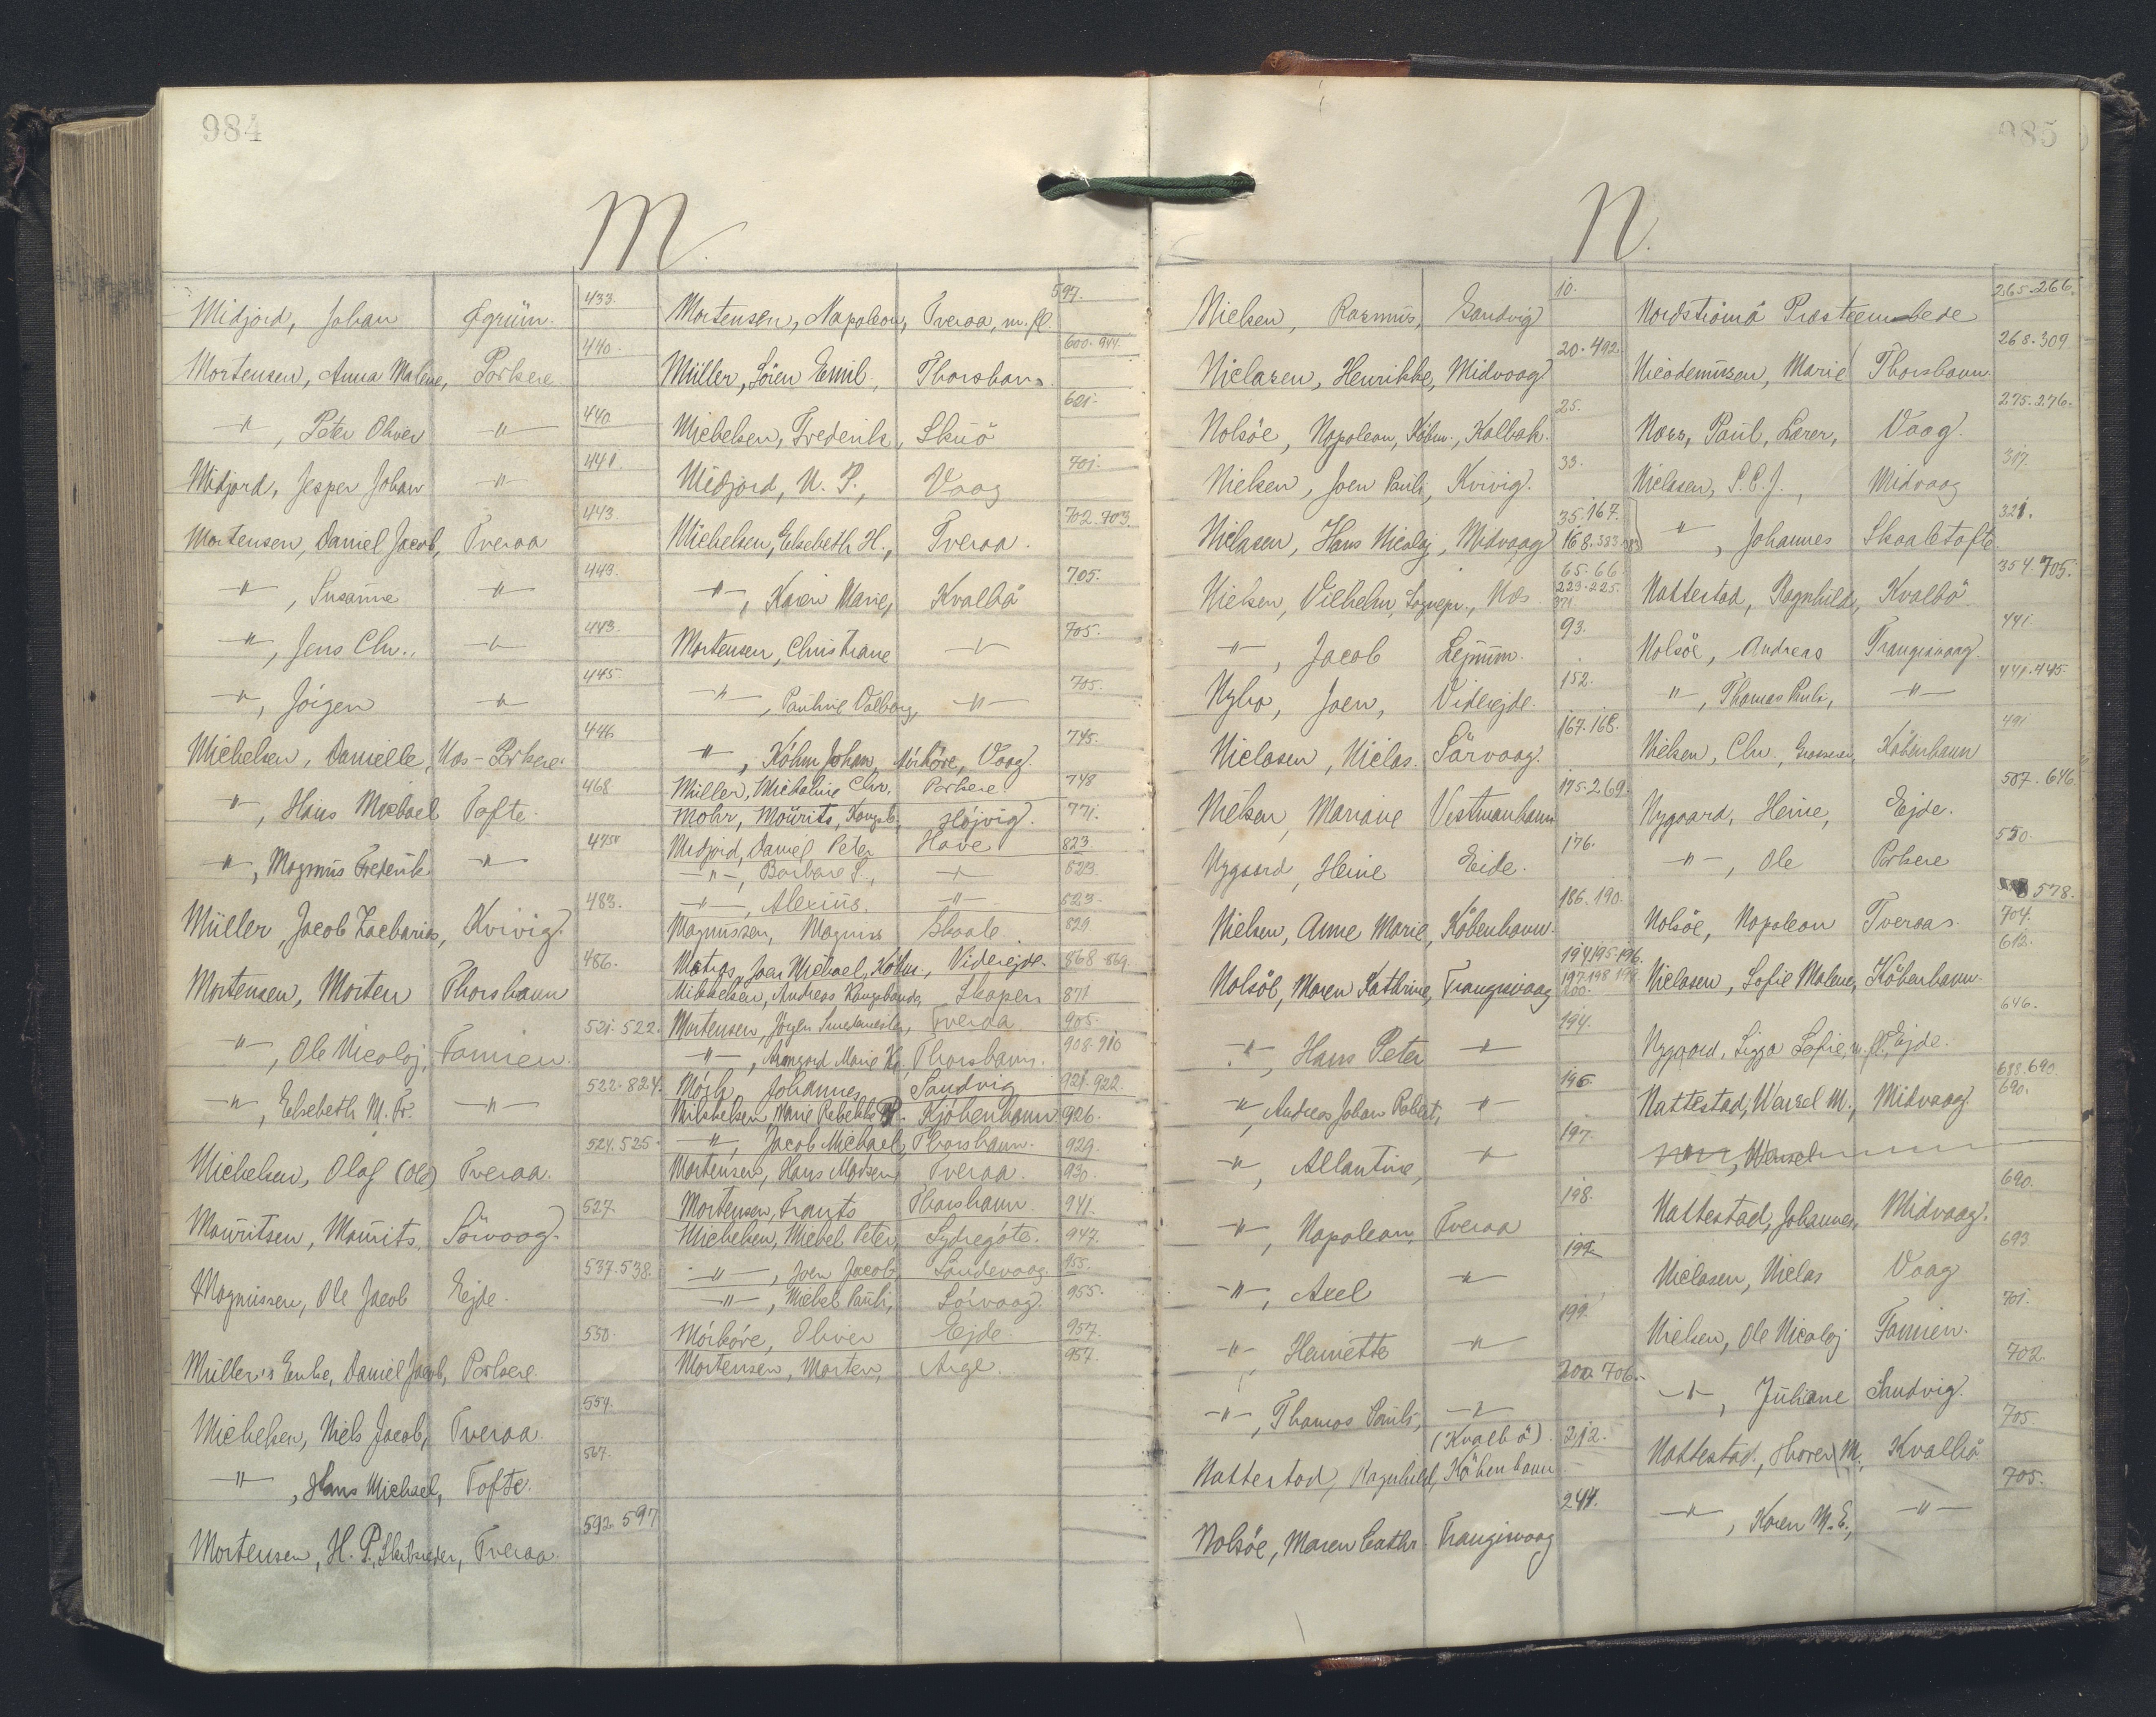 984
M.
Midjord, Johan Øgrüm. 433.
Mortensen, Anna Malene, Porkere 440.
-"-, Peter Oliver -"- 440
Midjord, Jesper Johan -"- 441.
Mortensen, Daniel Jacob, Tveraa 443.
-"-, Susanne -"- 443.
-"-, Jens Chr., -"- 443.
-"-, Jörgen -"- 445
Michelsen, Danielle, Næs-Porkere. 446
-"-, Hans Michael Tofte. 468
-"-, Magnus Frederik -"- 475
Müller, Jacob Zacharias, Kvivig. 483.
Mortensen, Morten Thorshavn 486.
-"-, Ole Nicolaj, Famien. 521. 522.
-"-, Elsebeth M. Fr. -"- 522. 824.
Michelsen, Olaf (Ole) Tveraa. 524. 525
Mouritsen, Mourits, Sörvaag. 527.
Magnussen, Ole Jacob Ejde. 537. 538.
Müller's Enke, Daniel Jacob, Porkere. 550.
Michelsen, Niels Jacob, Tveraa 559.
-"-, Hans Michael, Tofte. 567.
Mortensen, H. P., Skibsreder, Tveraa. 592. 597
Mortensen, Napoleon, Tveraa, m. fl. 597.
Müller, Sören Emil, Thorshavn. 600. 944.
Michelsen, Frederik, Skuö 601.
Midjord, N. P., Vaag 701.
Michelsen, Elsebeth H., Tveraa. 702. 703.
-"-, Karen Marie, Kvalbö 705.
Mortensen, Christiane -"- 705.
-"-, Pauline Valborg, -"- 705.
-"-, Köbm Johan Mörköre, Vaag. 745.
Müller, Michaline Chr. Porkere. 748
Mohr, Möurits, Kongsb., Höjvig. 771.
Midjord, Daniel Peter Hove 823.
-"-, Barbara S., -"- 823.
-"-, Alexius. -"- 823.
Magnussen, Magnus Skaale 829
Matras, Joen Michael, Köbm., Viderejde. 868. 869.
Mikkelsen, Andreas Kongsbonde, Skopen 871
Mortensen, Jörgen Smedemester, Tveraa 905.
-"-, Armgard Marie K., Thorshavn. 908. 910
Mörk, Johannes Sandvig 921. 922.
Mikkelsen, Marie Rebekka P. Kjöbenhavn 926.
-"-, Jacob Michael, Thorshavn. 929.
Mortensen, Hans Madsen Tveraa. 930.
Mortensen, Frants Thorshavn. 941.
Michelsen, Michel Peter, Sydregöte. 947.
-"-, Joen Jacob, Sandevaag. 955.
-"-, Michel Pauli, Sörvaag. 955.
Mörköre, Oliver Ejde. 957.
Mortensen, Morten, Arge. 957.
985
N.
Nielsen, Rasmus, Sandvig 10.
Niclasen, Henrikke, Midvaag 20. 492
Nolsöe, Napoleon, Köbm., Kolbak. 25.
Nielsen, Joen Pauli, Kvivig. 33.
Niclasen, Hans Nicolaj, Midvaag 35. 167. 168. 383.
Nielsen, Vilhelm, Sognepr., Næs. 65. 66. 223. 225. 371
-"-, Jacob Lejnum. 93.
Nybo, Joen, Viderejde. 152.
Niclasen, Niclas. Sörvaag. 167. 168.
Nielsen, Mariane Vestmanhavn 175. 269.
Nygaard, Heine Eide. 176.
Nielsen, Anne Marie, Köbenhavn. 186. 190.
Nolsöe, Maren Kathrine, Trangisvaag 194. 195. 196. 197. 198. 199. 200.
-"-, Hans Peter -"- 194.
-"-, Andreas Johan Robert, -"- 196.
-"-, Allantine, -"- 197.
-"-, Napoleon, Tveraa 198.
-"-, Axel -"- 199.
-"-, Henriette -"- 199.
-"-, Thomas Pauli, -"- 200. 706.
Nattestad, Ragnhild, (Kvalbö). Köbenhavn 212.
Nolsöe, Maren Cathr. Trangisvaag 244.
Nordströmö Præsteembede 265. 266.
Nicodemussen, Marie Thorshavn. 268. 309
Næss, Paul, Lærer, Vaag. 275. 276.
Niclasen, S. C. J., Midvaag 317.
-"-, Johannes Skaaletofte. 321.
Nattestad, Ragnhild, Kvalbö. 354. 705.
Nolsöe, Andreas Trangisvaag. 441
-"-, Thomas Pauli, -"- 441. 445.
Nielsen, Chr., Grosserer, Köbenhavn 491
Nygaard, Heine, Ejde. 507. 646.
-"-, Ole Porkere 550.
Nolsöe, Napoleon Tveraa. 578. 704.
Niclasen, Sofie Malene, Köbenhavn. 612.
Nygaard, Sigga Sofie, m. fl., Ejde. 646.
Nattestad, Wensel M., Midvaag. 688. 690. 690.
-"-, Wensel
Nattestad, Johannes, Midvaag. 690.
Niclasen, Niclas Vaag 693
Nielsen, Ole Nicolaj Famien. 701.
-"-, Juliane Sandvig. 702.
Nattestad, Thorer M., Kvalbö 705.
-"-, Karen M. E., -"- 705.